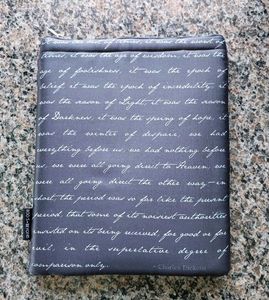 it was the best of times, it was the worst of
times, it was the age of wisdom, it was the
age of foolishness, it was the epoch of
belief, it was the epoch of incredulity, it
was the season of Light, it was the season
of Darkness, it was the spring of hope, it
was the winter of despair, we had
everything before us, we had nothing before
us, we were all going direct to Heaven, we
were all going direct the other way – in
short, the period was so far like the present
period, that some of its noisiest authorities
insisted on its being received, for good or for
evil, in the superlative degree of
comparison only.
- Charles Dickens